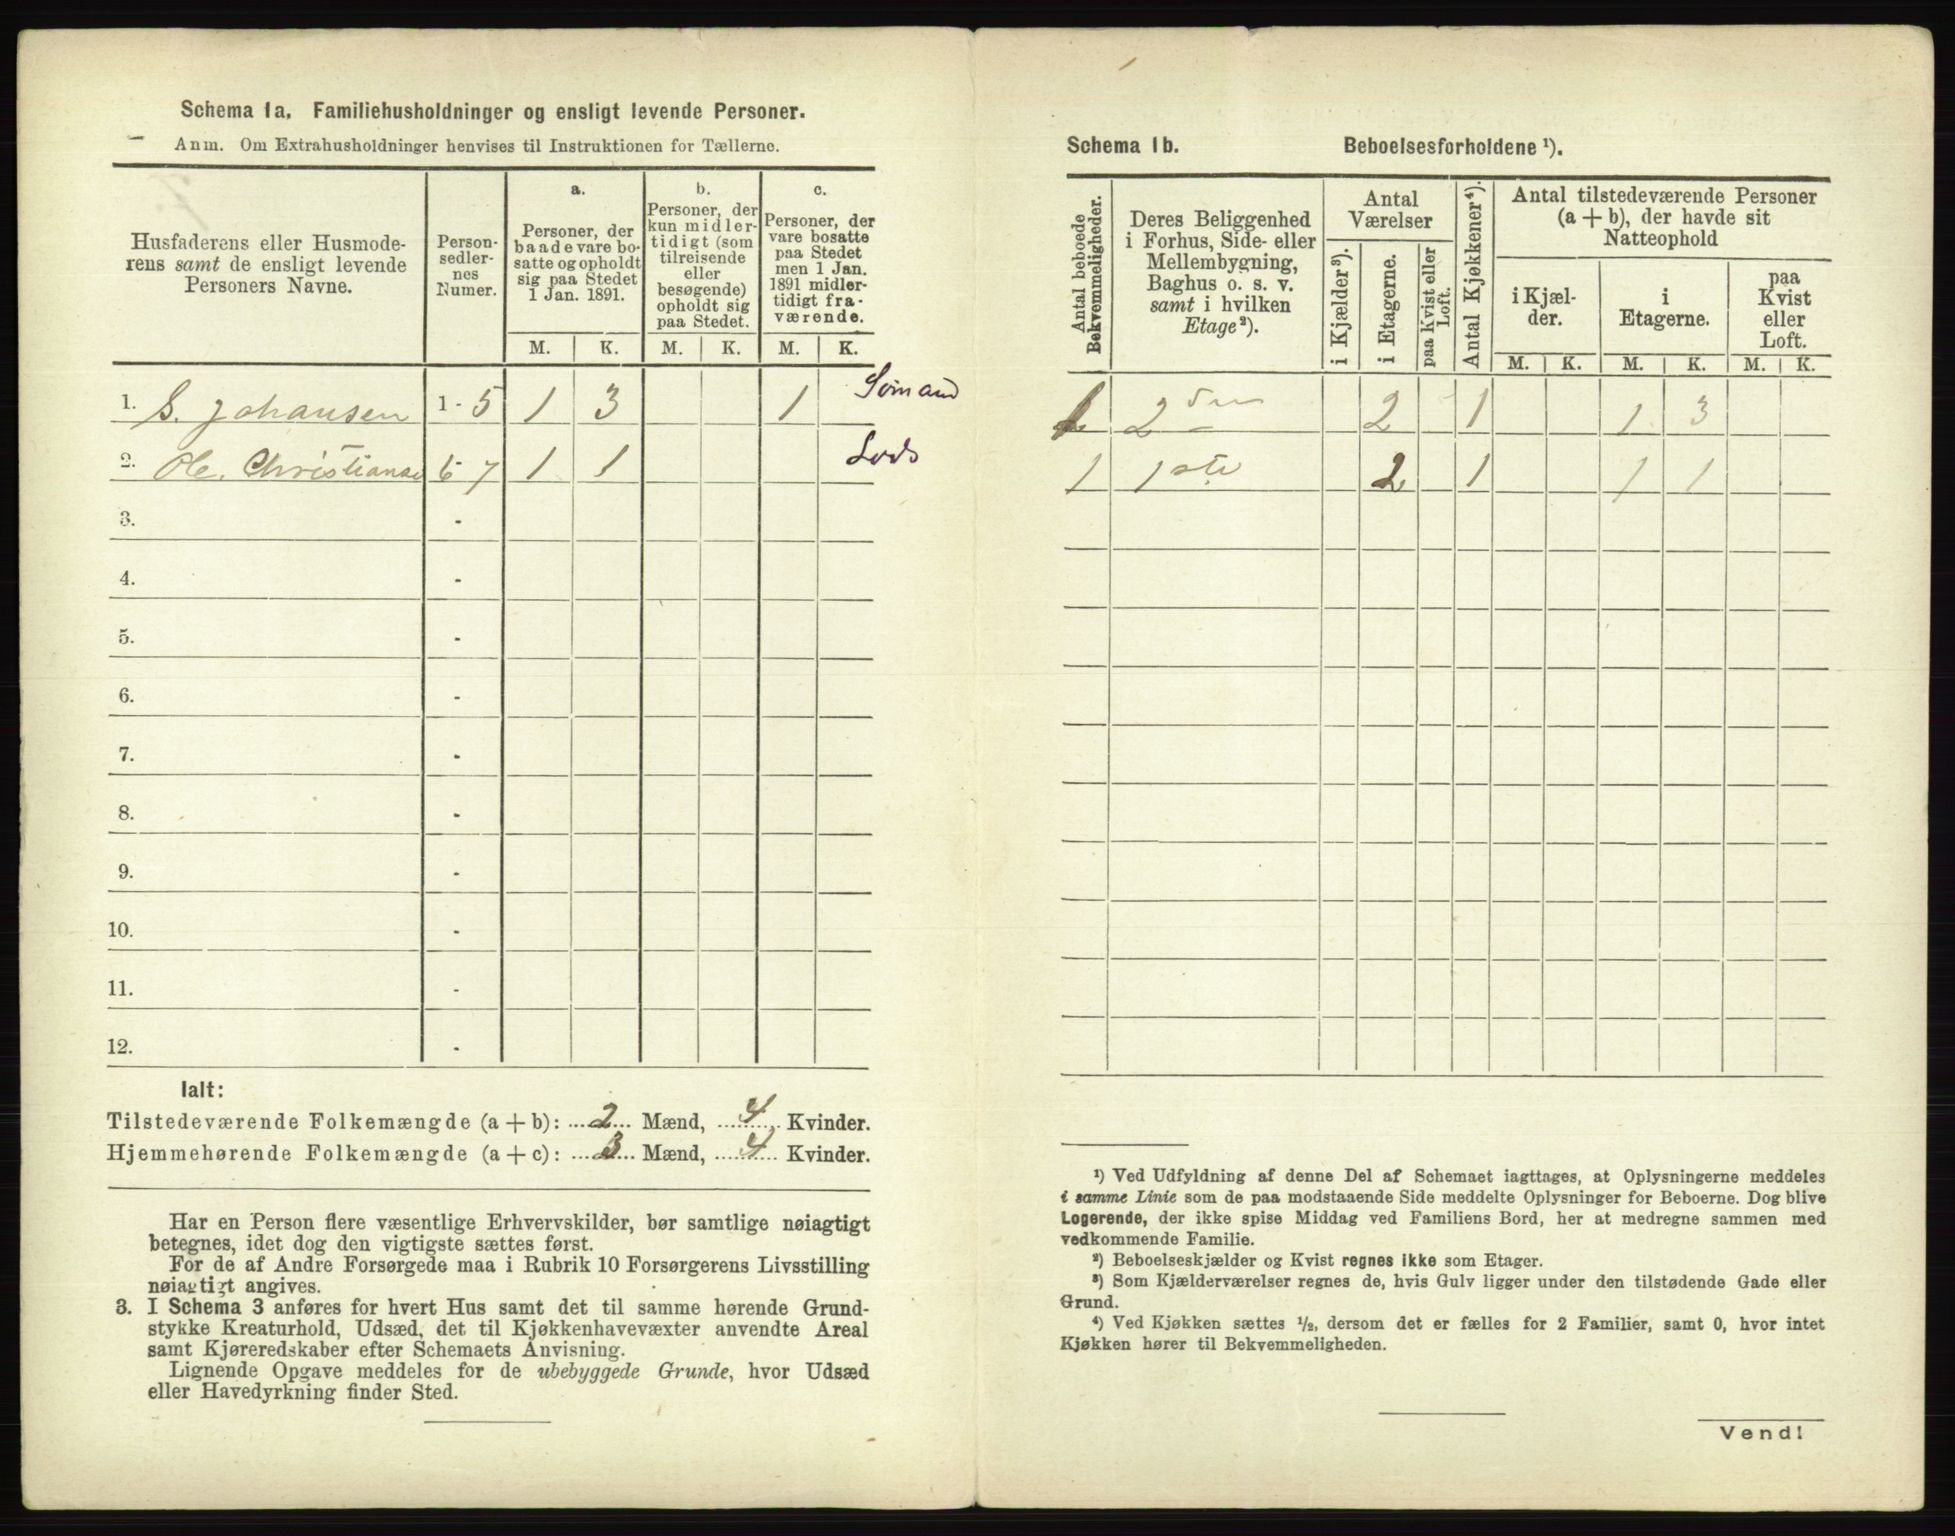 Schema 1a. Familiehusholdninger og ensligt levende Personer.
Anm. Om Extrahusholdninger henvises til Instruktionen for Tællerne.
Husfaderens eller Husmode-
rens samt de ensligt levende
Personers Navne.
Person-
sedler-
nes
Numer.
a.
Personer, der
baade vare bo-
satte og opholdt
sig paa Stedet
1 Jan. 1891.
b.
Personer, der
kun midler-
tidigt (som
tilreisende
eller
besøgende)
opholdt sig
paa Stedet.
c.
Personer, der
vare bosatte
paa Stedet
men 1 Jan.
1891 midler-
tidigt fra-
værende.
M. K. M. K. M. K.
1. S. Johansen 1 - 5 1 3 1 Sømand
2. Ole. Christianse 6 - 7 1 1 Lods
3. -
4. -
5. -
6. -
7. -
8. -
9. -
10. -
11. -
12. -
Ialt:
Tilstedeværende Folkemængde (a + b): 2 Mænd, 4 Kvinder.
Hjemmehørende Folkemængde (a + c): 3 Mænd, 4 Kvinder.
Har en Person flere væsentlige Erhvervskilder, bør samtlige nøiagtigt
betegnes, idet dog den vigtigste sættes først.
For de af Andre Forsørgede maa i Rubrik 10 Forsørgerens Livsstilling
nøiagtigt angives.
3. I Schema 3 anføres for hvert Hus samt det til samme hørende Grund-
stykke Kreaturhold, Udsæd, det til Kjøkkenhavevæxter anvendte Areal
samt Kjøreredskaber efter Schemaets Anvisning.
Lignende Opgave meddeles for de ubebyggede Grunde, hvor Udsæd
eller Havedyrkning finder Sted.
Schema 1b. Beboelsesforholdene ¹).
Antal beboede
Bekvemmeligheder.
Deres Beliggenhed
i Forhus, Side- eller
Mellembygning,
Baghus o. s. v.
samt i hvilken
Etage ²).
Antal
Værelser
i Kjælder ³).
i Etagerne.
paa Kvist eller
Loft.
Antal Kjøkkener ⁴).
Antal tilstedeværende Personer
(a + b), der havde sit
Natteophold
i Kjæl-
der.
i
Etagerne.
paa
Kvist
eller
Loft.
M. K. M. K. M. K.
1 2den 2 1 1 3
1 1ste 2 1 1 1
¹) Ved Udfyldning af denne Del af Schemaet iagttages, at Oplysningerne meddeles
i samme Linie som de paa modstaaende Side meddelte Oplysninger for Beboerne. Dog blive
Logerende, der ikke spise Middag ved Familiens Bord, her at medregne sammen med
vedkommende Familie.
²) Beboelseskjælder og Kvist regnes ikke som Etager.
³) Som Kjælderværelser regnes de, hvis Gulv ligger under den tilstødende Gade eller
Grund.
⁴) Ved Kjøkken sættes ½, dersom det er fælles for 2 Familier, samt 0, hvor intet
Kjøkken hører til Bekvemmeligheden.
Vend!